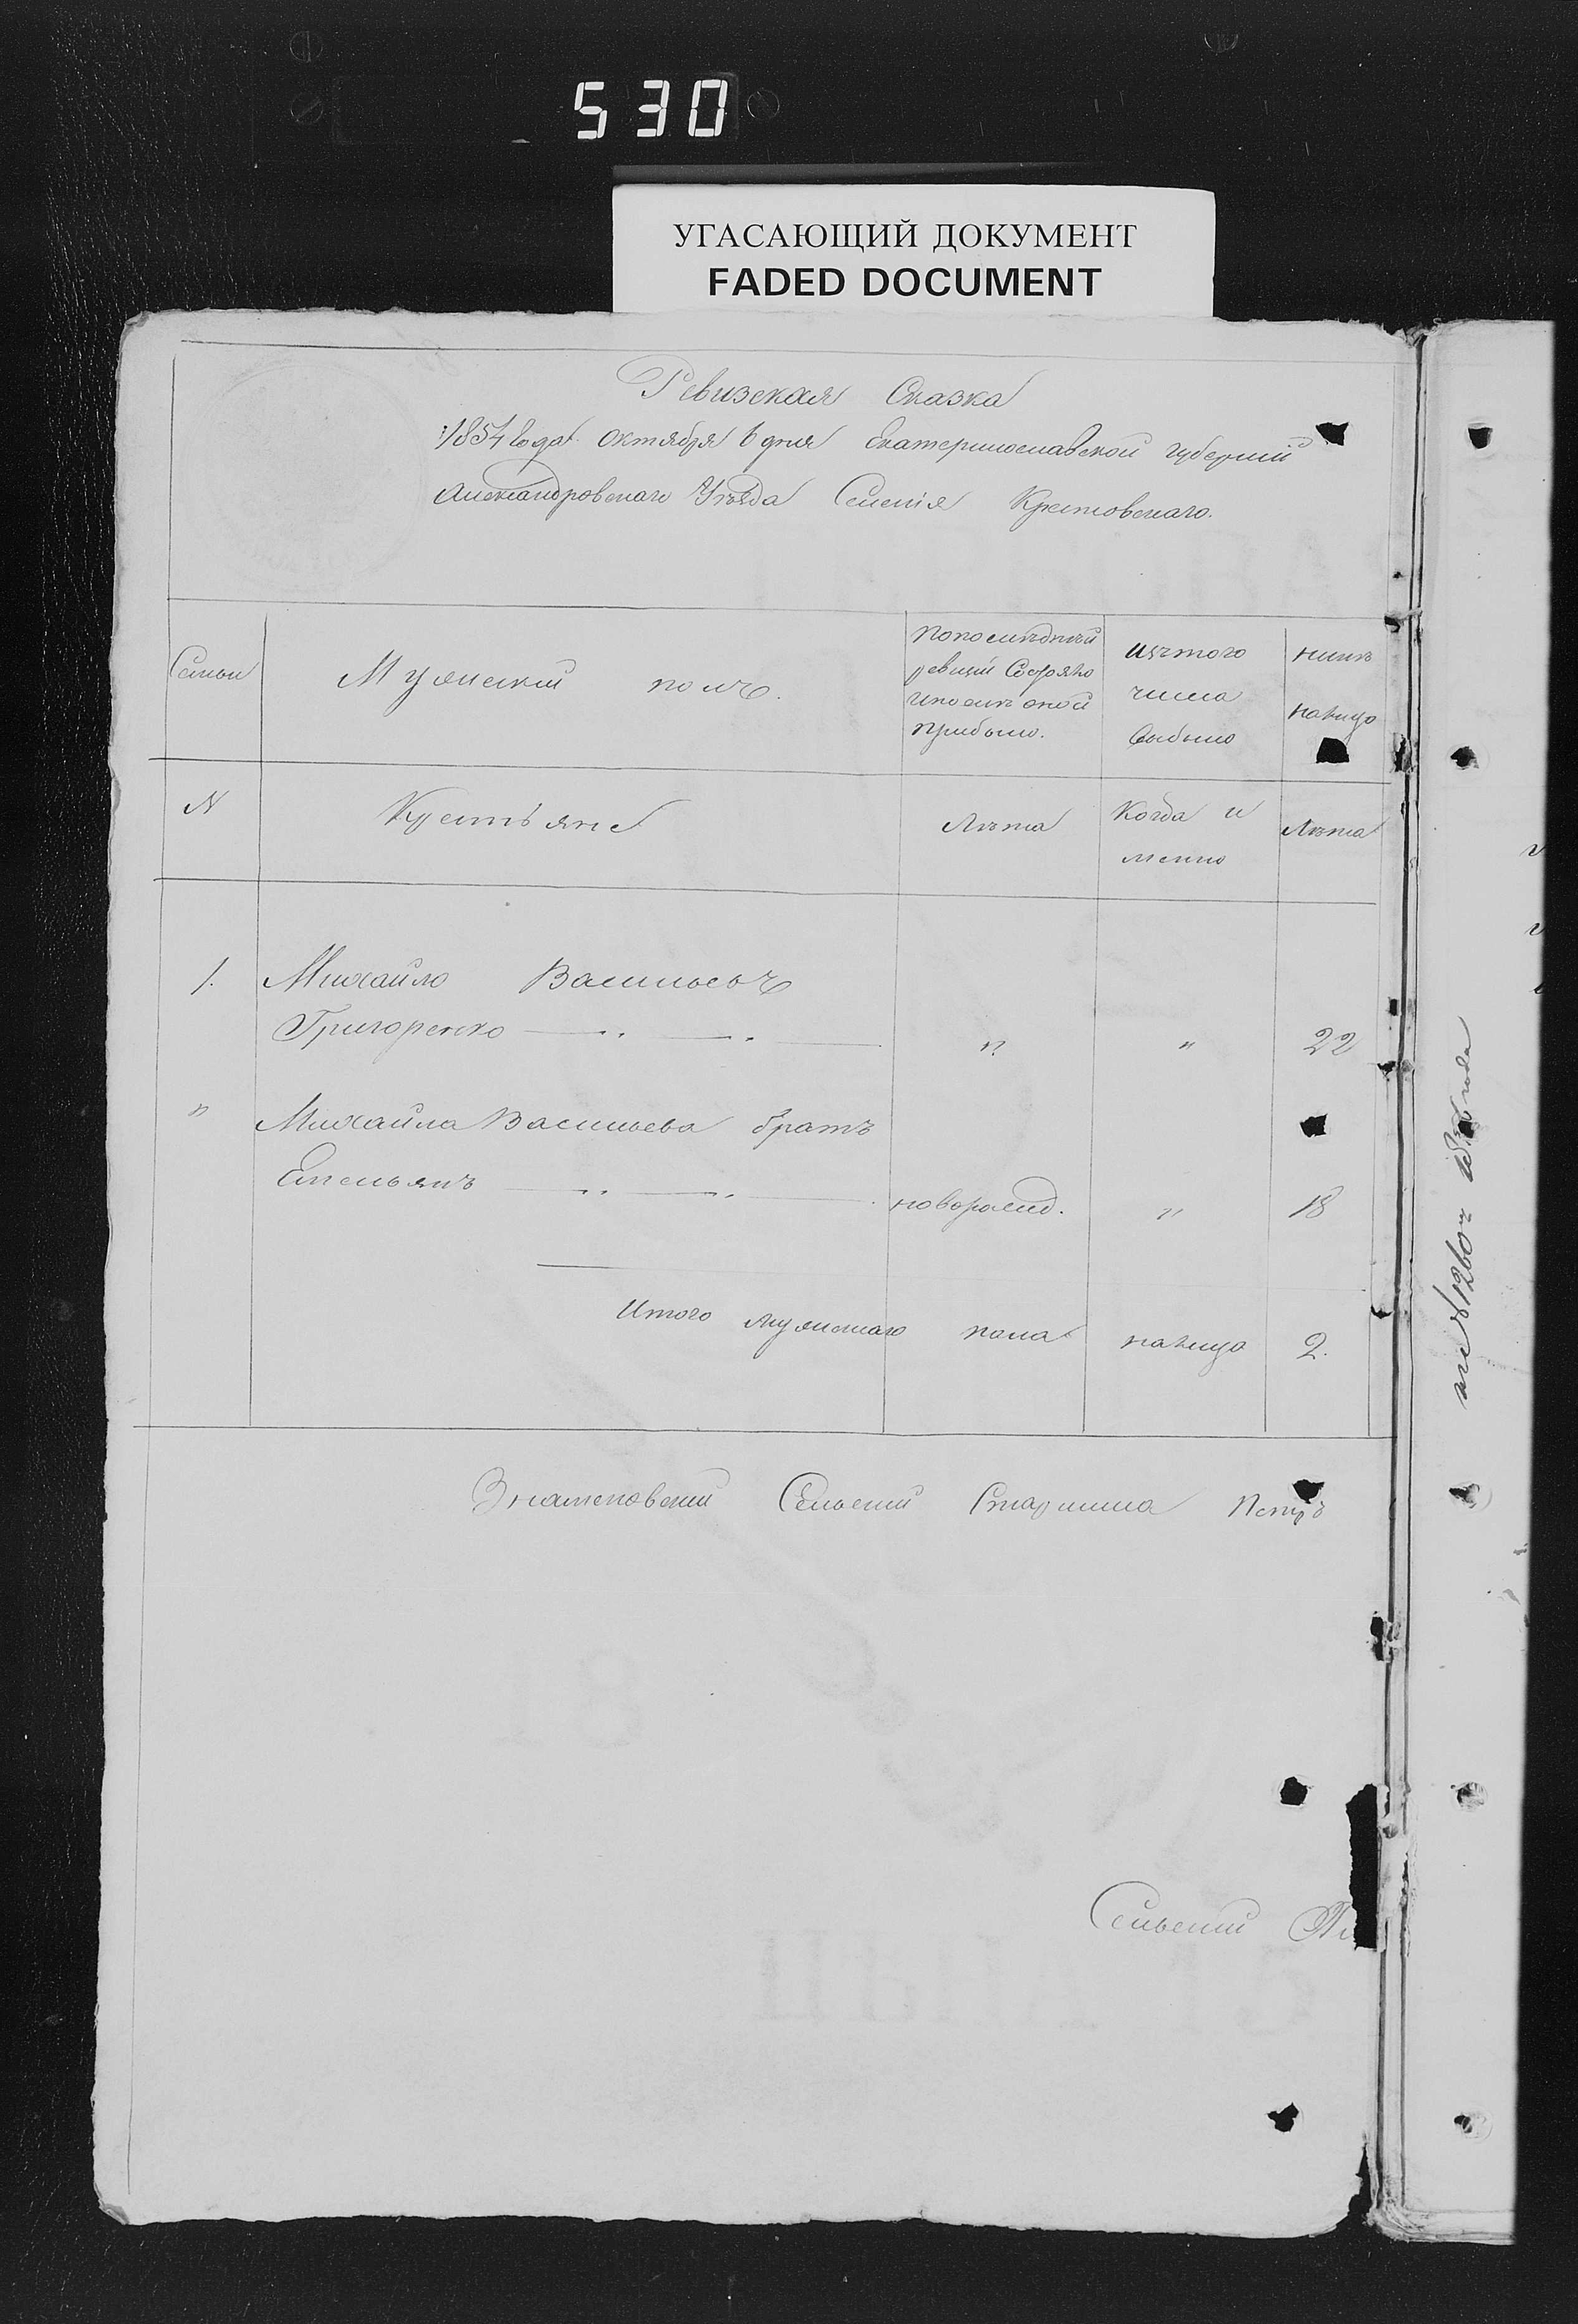 530
УГАСАЮЩИЙ ДОКУМЕНТ
FADED DOCUMENT
Ревизская Сказка
1854 года октября 6 дня Екатеринославской губернiи
Александровскаго Уѣзда Селенiя Крестовскаго.
Семьи
Мужескiй полъ.
По последней
ревизiи Состояло
и после оной
прибыло.
Изъ того
числа
выбыло
нынѣ
налицо
N
Крестьяне
Лѣта
Когда и
менно
Лѣта
1.
Михайло Васильевъ
Григоренко
"
"
22
"
Михайла Васильева братъ
Емельянъ
новорожд.
"
18
Итого мужескаго пола налицо 2.
Знаменовскiй Сельскiй Старшина Петръ
Сельскiй